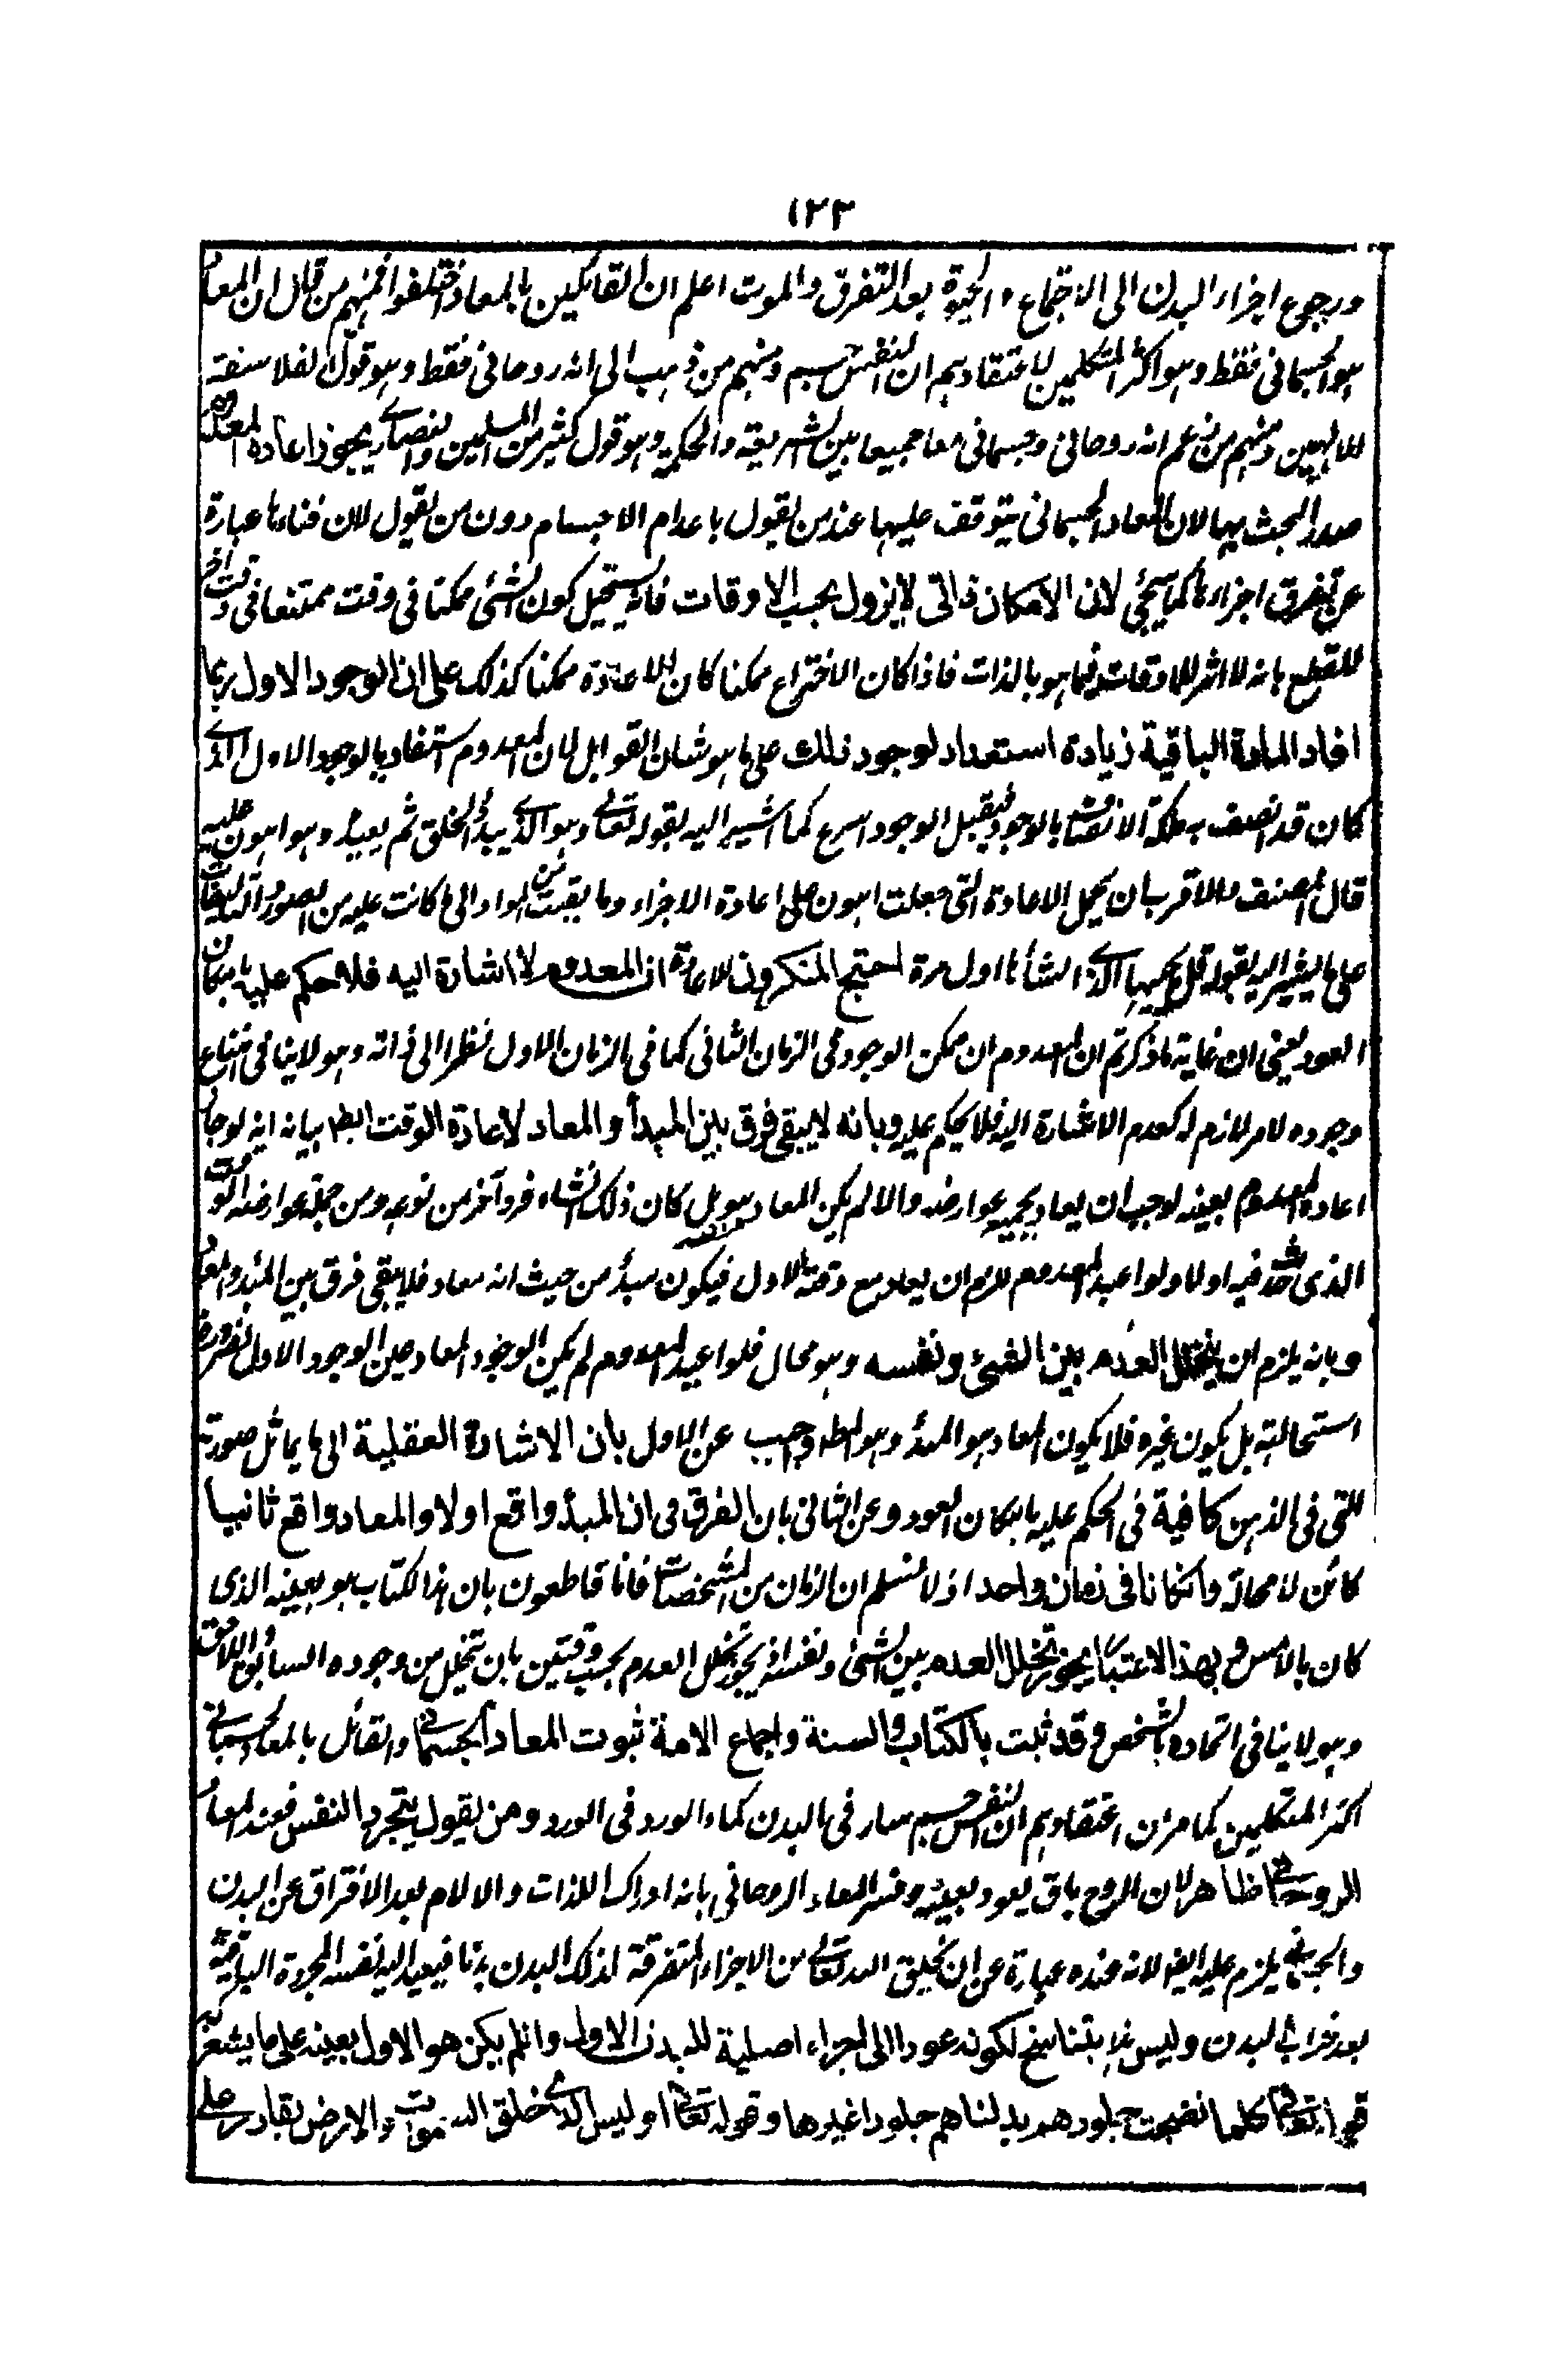 ١٢٣
ورجوع اجزاء البدن الى الاجتماع والحيوة بعد التفرق والموت اعلم ان القائلين بالمعاد اختلفوا فمنهم من قال ان المعاد
هو الجسمانى فقط وهو اكثر المتكلمين لاعتقادهم ان النفس جسم ومنهم من ذهب الى انه روحانى فقط وهو قول الفلاسفة
الالهيين ومنهم من زعم انه روحانى وجسمانى معا جميعا بين الشريعة والحكمة وهو قول كثير من المسلمين والنصارى يجوز اعادة المعدوم
صدر البحث بها لان المعاد الجسمانى يتوقف عليها عند من يقول باعدام الاجسام دون من يقول لان فناءها عبارة
عن تفرق اجزاءها كما سيجئ لان الامكان ذاتى لا يزول بحسب الاوقات فانه يستحيل كون الشئ ممكنا فى وقت ممتنعا فى وقت آخر
للقطع بانه لا اثر للاوقات فيما هو بالذات فاذا كان الاختراع ممكنا كان الاعادة ممكنا كذلك على ان الوجود الاول ربما
افاد المادة الباقية زيادة استعداد لوجود ذلك على ما هو شان القوابل لان المعدوم استفاد بالوجود الاول الذى
كان قد اتصف به ملكة الاتصاف بالوجود فيقبل الوجود اسرع كما اشير اليه بقوله تعالى وهو الذى يبدؤ الخلق ثم يعيده وهو اهون عليه
قال المصنف والاقرب ان يحمل الاعادة التى جعلت اهون على اعادة الاجزاء وما بقيت من المواد الى ما كانت عليه من الصور والتاليفات
على ما يشير اليه بقوله قل يحييها الذى انشأها اول مرة احتج المنكرون للاعادة ان المعدوم لا اشارة اليه فلا حكم عليه بامكان
العود يعنى ان غاية ما ذكرتم ان المعدوم ان ممكن الوجود فى الزمان الثانى كما فى الزمان الاول نظرا الى ذاته وهو لا ينافى امتناع
وجوده لامر لازم له كعدم الاشارة اليه فلا يحكم عليه وبانه لا يبقى فرق بين المبدأ والمعاد لاعادة الوقت ايضا بيانه انه لو جاز
اعادة المعدوم بعينه لوجب ان يعاد بجميع عوارضه والا لم يكن المعاد هو بل كان ذلك انشاء فرد آخر من نوعه ومن جملة عوارضه الوقت
الذى حدث فيه اولا ولو اعيد المعدوم لزم ان يعاد مع وقته الاول فيكون مبدأ من حيث انه معاد فلا يبقى فرق بين المبدأ والمعاد
وبانه يلزم ان يتخلل العدم بين الشئ ونفسه وهو محال فلو اعيد المعدوم لم يكن الوجود المعاد عين الوجود الاول لضرورة
استحالته بل يكون غيره فلا يكون المعاد هو المبدأ وهو المط واجيب عن الاول بان الاشارة العقلية الى ما يماثل صورته
التى فى الذهن كافية فى الحكم عليه بامكان العود وعن الثانى بان الفرق فى ان المبدأ واقع اولا والمعاد واقع ثانيا
كائن لا محالة وان كانا فى زمان واحد اذ لا نسلم ان الزمان من المشخصات فانا قاطعون بان هذا الكتاب هو بعينه الذى
كان بالامس وبهذا الاعتبار يجوز تخلل العدم بين الشئ ونفسه اذ يجوز تخلل العدم بحسب وقتين بان تخلل من وجوده السابق واللاحق
وهو لا ينافى اتحاده بالشخص وقد ثبت بالكتاب والسنة واجماع الامة ثبوت المعاد الجسمانى والقائل بالمعاد الجسمانى
اكثر المتكلمين كما مر ان اعتقادهم ان النفس جسم سار فى البدن كماء الورد فى الورد ومن يقول بتجرد النفس فعنده المعاد
الروحانى ظاهر لان الروح باق يعود بعينه وفسر المعاد الروحانى بانه ادراك اللذات والالام بعد الافتراق عن البدن
والجسمانى يلزم عليه ايضا لانه عنده عبارة عن ان يخلق الله تعالى من الاجزاء المتفرقة لذلك البدن بدنا فيعيد اليه نفسه المجردة الباقية
بعد خراب البدن وليس هذا بتناسخ لكونه عودا الى اجزاء اصلية للبدن الاول وان لم يكن هو الاول بعينه على ما يشعر به
قوله تعالى كلما نضجت جلودهم بدلناهم جلودا غيرها وقوله تعالى اوليس الذى خلق السموات والارض بقادر على